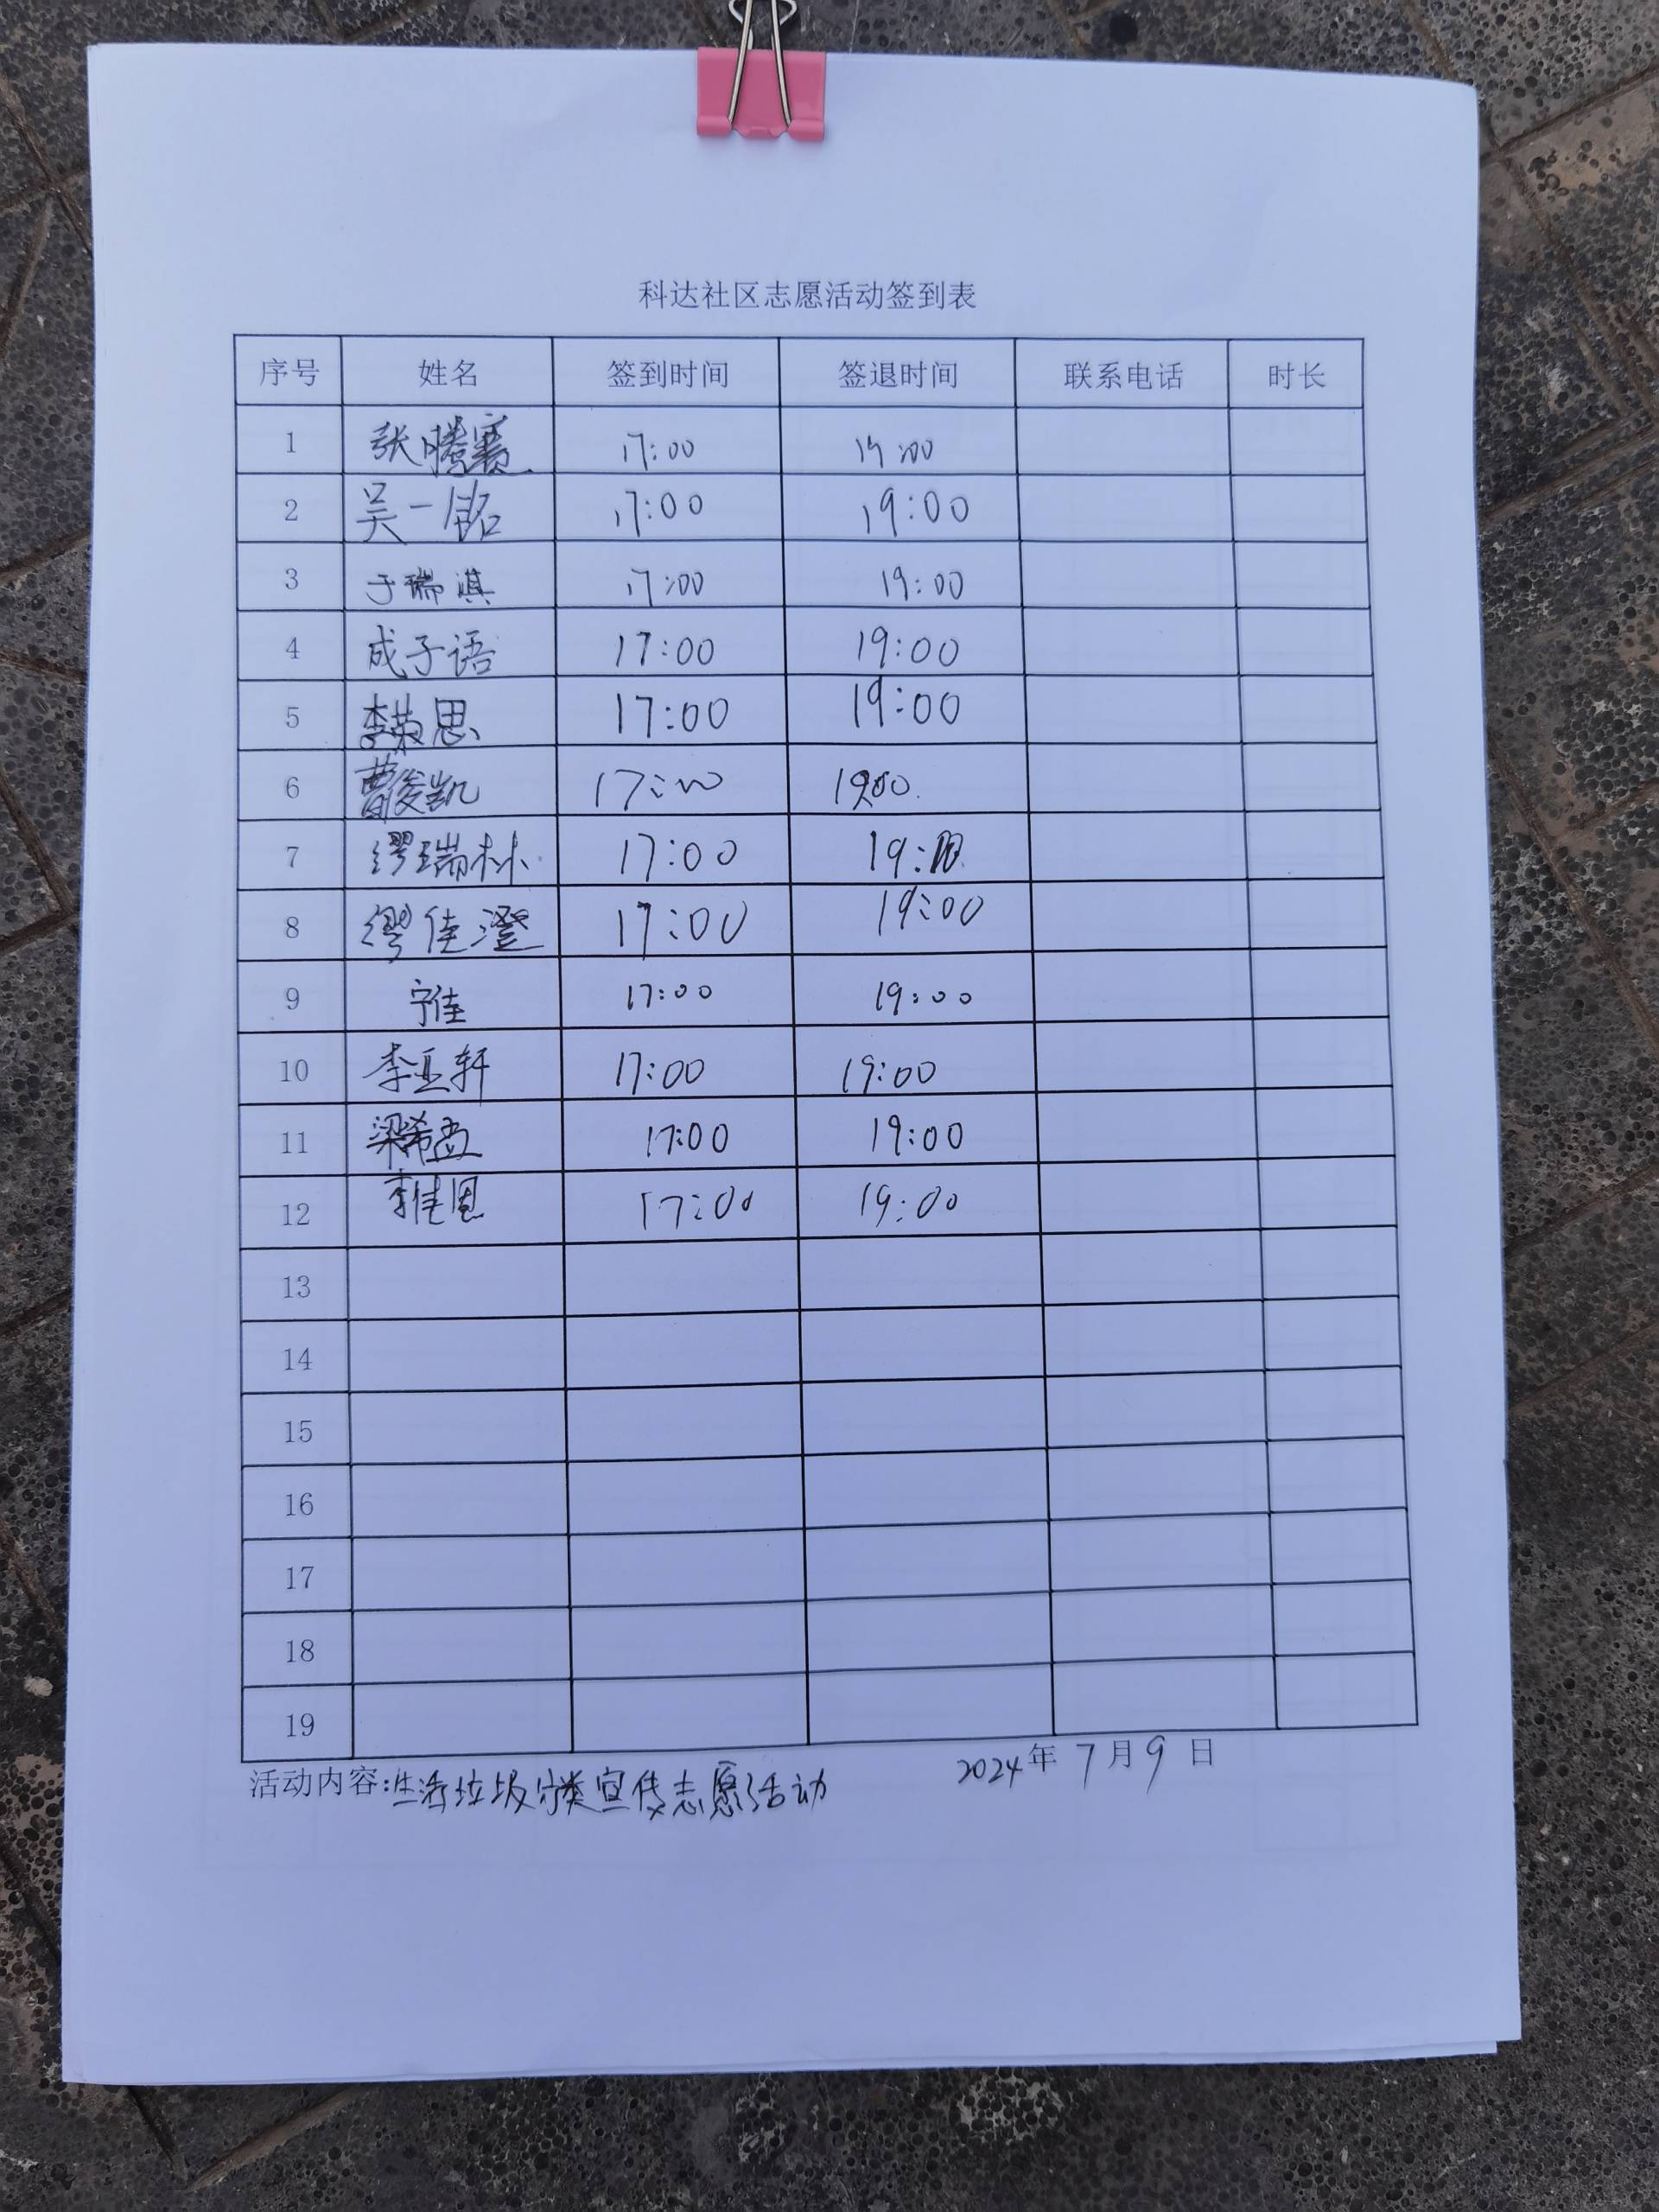 科达社区志愿活动签到表
序号 姓名 签到时间 签退时间 联系电话 时长
1 张腾赛 17:00 19:00
2 吴一铭 17:00 19:00
3 于瑞淇 17:00 19:00
4 成子语 17:00 19:00
5 李荣思 17:00 19:00
6 曹俊凯 17:00 19:00
7 缪瑞林 17:00 19:00
8 缪佳澄 17:00 19:00
9 宁佳 17:00 19:00
10 李亚轩 17:00 19:00
11 梁希孟 17:00 19:00
12 李佳恩 17:00 19:00
13
14
15
16
17
18
19
活动内容:生活垃圾分类宣传志愿活动 2024年7月9日